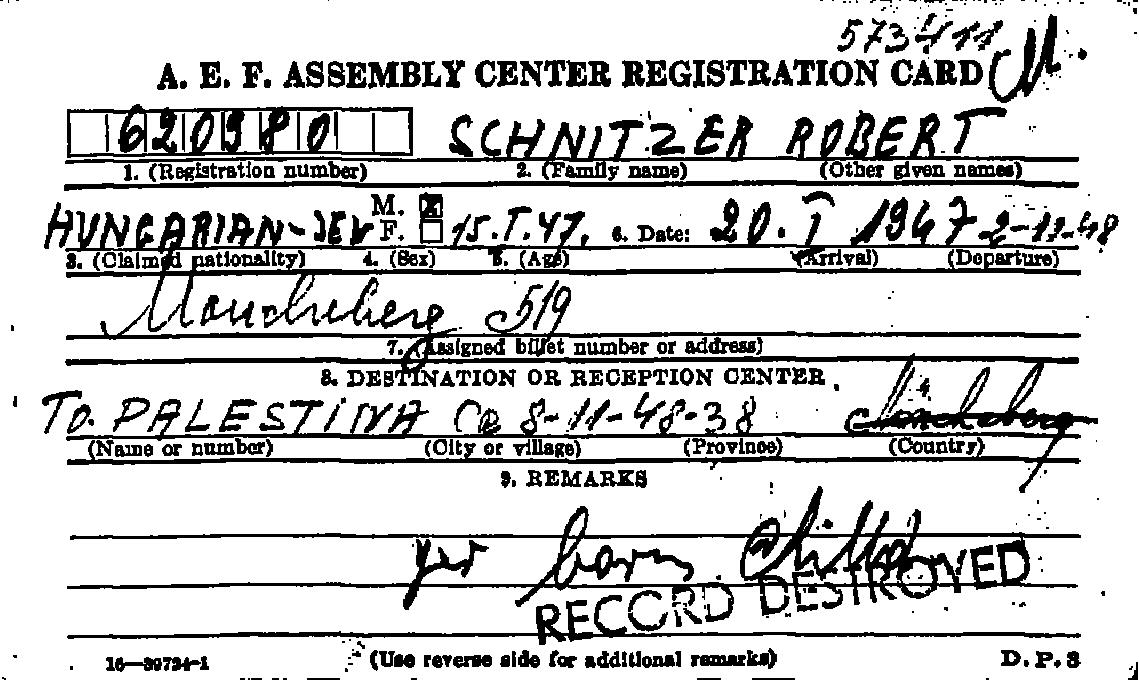 573411 M.
A. E. F. ASSEMBLY CENTER REGISTRATION CARD
620980 SCHNITZER ROBERT
1. (Registration number) 2. (Family name) (Other given names)
HUNGARIAN-JEW M. X F. 15.I.47. 6. Date: 20. I 1947 2-11-48
3. (Claimed nationality) 4. (Sex) 5. (Age) (Arrival) (Departure)
Moncheberg 519
7. (Assigned billet number or address)
8. DESTINATION OR RECEPTION CENTER
TO. PALESTINA 8-11-48-38
(Name or number) (City or village) (Province) (Country)
9. REMARKS
born
RECORD DESTROYED
16-39734-1 (Use reverse side for additional remarks) D.P.3